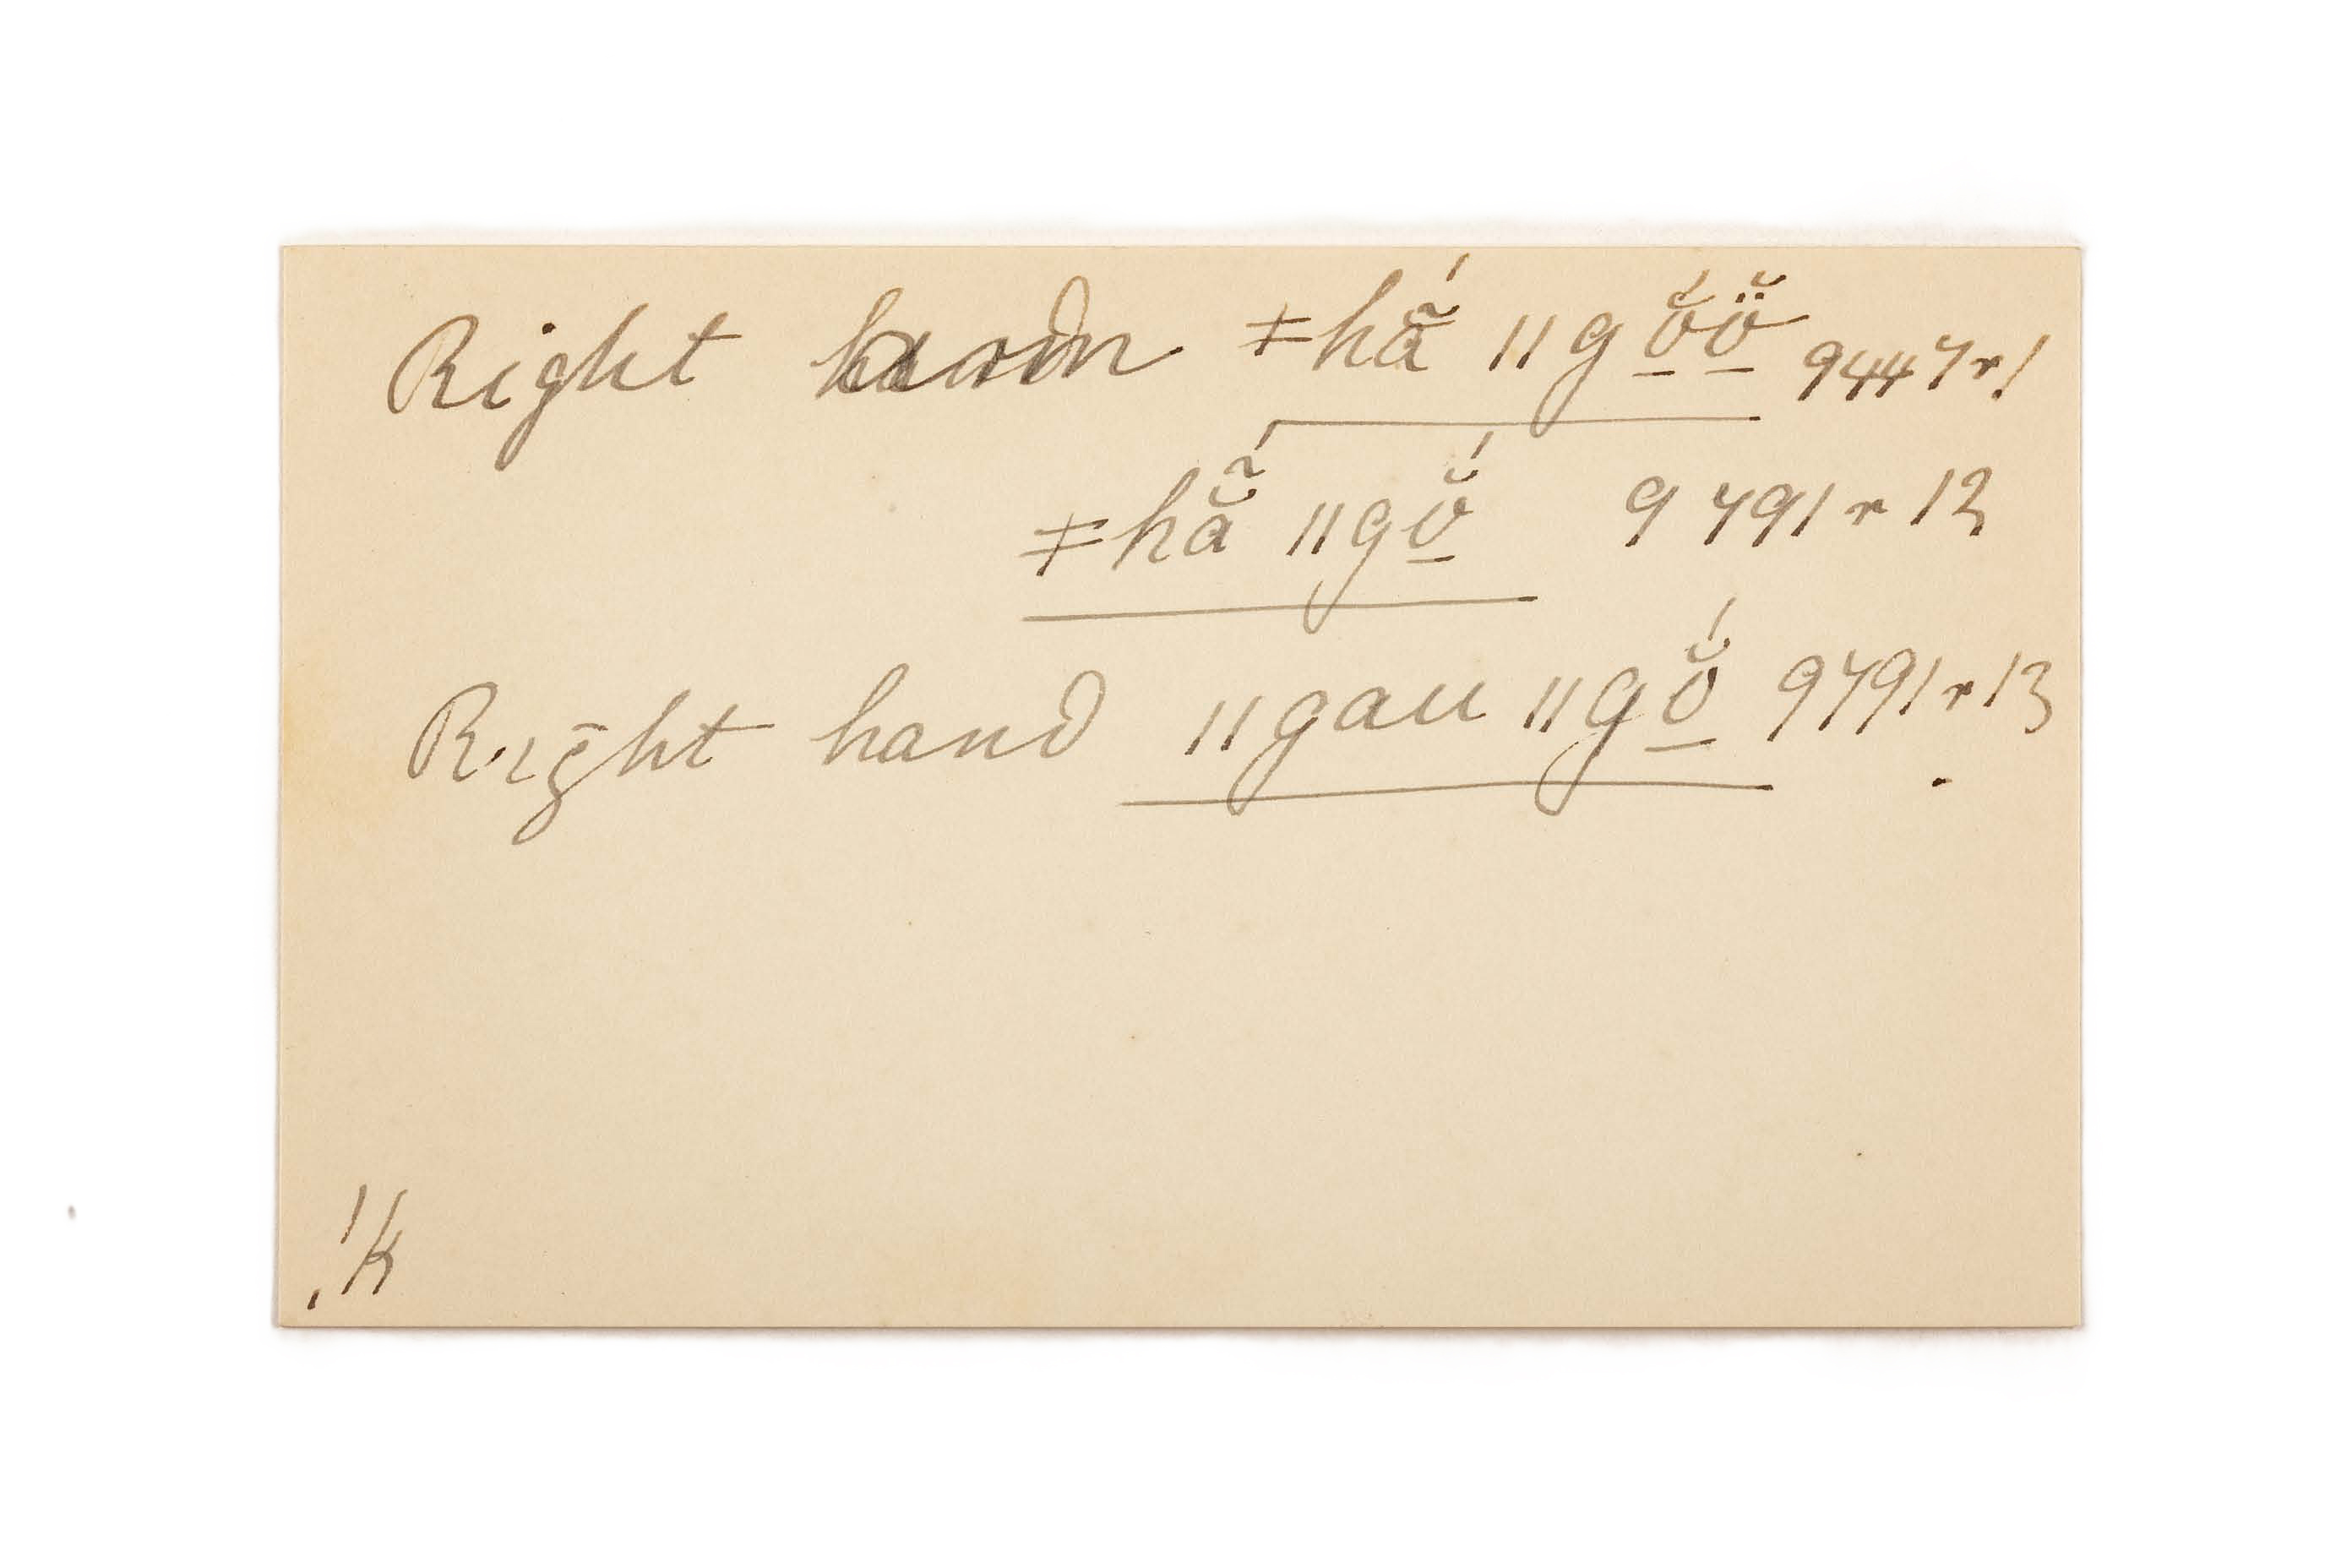 Right ǂhã́ ǁgṓ̤ŏ̤̈ 9447r.1
ǂhã̆́ ǁgŏ̱́ 9791r12
Right hand ǁgau ǁgŏ̱́ 9791r13
!k